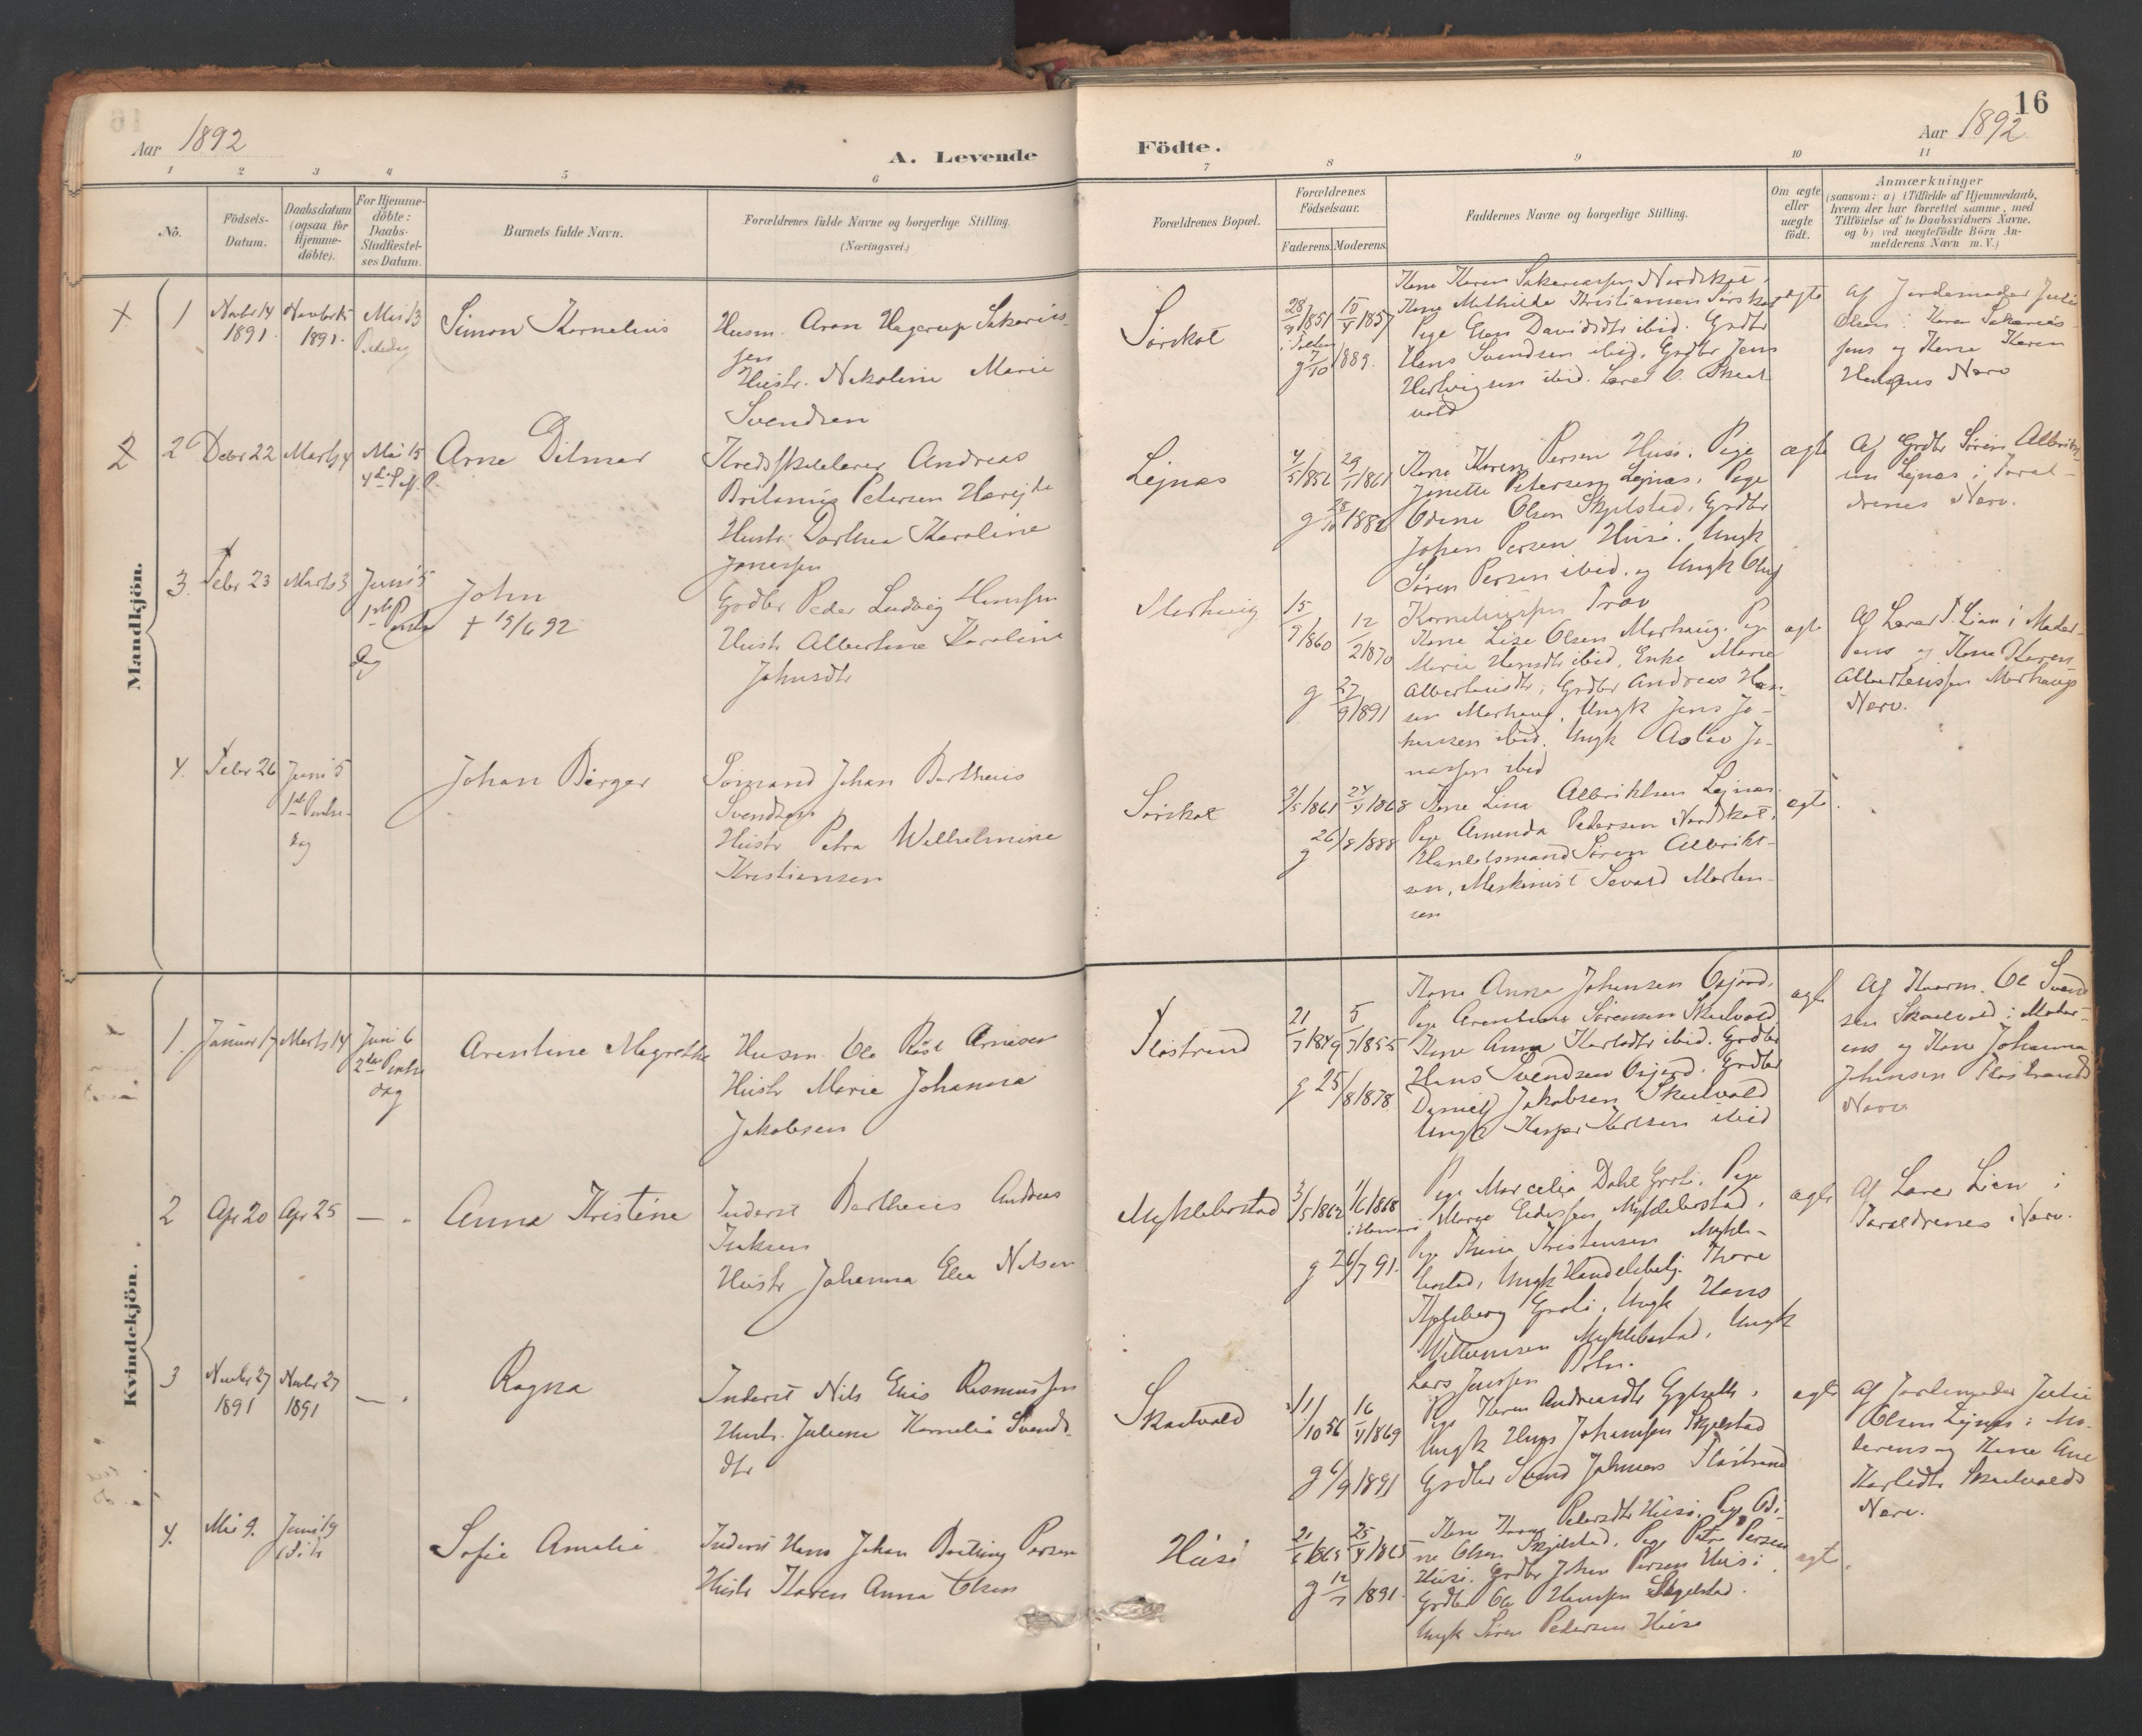 16
Aar 1892
A. Levende
Födte.
Aar 1892
1 2 3 4 5 6 7 8 9 10 11
No.
Födsels-
Datum.
Daabsdatum
(ogsaa for
Hjemme-
döbte).
For Hjemme-
döbte:
Daabs-
Stadfæstel-
ses Datum.
Barnets fulde Navn.
Forældrenes fulde Navne og borgerlige Stilling.
(Næringsvei.)
Forældrenes Bopæl.
Forældrenes
Födselsaar.
Faderens. Moderens.
Faddernes Navne og borgerlige Stilling.
Om ægte
eller
uægte
födt.
Anmærkninger
(saasom: a) i Tilfælde af Hjemmedaab,
hvem der har forrettet samme, med
Tilföielse af to Daabsvidners Navne.
og b) ved uægtefödte Börn An-
melderens Navn m.V.)
Mandkjön.
1
Novbr 14
1891
Novbr 15
1891.
Mai 13
Simon Kornelius
Husm. Aron Hagerup Sakarias-
sen
Hustr. Nikoline Marie
Svendsen
Sörskot
g 7/10 1889.
Kone Karen Sakariassen Nordskot,
Kone Mathilde Kristiansen Sörskot
Pige Elen Davidsdtr ibid. Grdbr
Hans Svendsen ibid. Grdbr Jens
Hartvigsen ibid. Lærer O. Skeat-
vold
ægte
Af Jordemoder Julie
Olsen i Karen Sakarias-
sens og Kone Karen
Nærv
2
Debr 22
Marts 4
Mai 15
Arne Ditmar
Kredsskolelærer Andreas
Britanius Petersen
Hustr. Dorthea Karoline
Jonassen
Lejnæs
4/5 1856
29/7 1861
g 28/10 1882
Kone Karen Persen Husö. Pige
Jonette Petersen Lejnæs. Pige
Odine Olsen Skjelstad. Grdbr
Johan Persen Husö. Ungk
Sören Persen ibid. og Ungk Oluf
Korneliussen Prao
ægte
Af Grdbr Sören Albrikt-
sen Lejnæs i Foræl-
drenes Nærv.
3.
Febr 23
Marts 3
Juni 5
1ste Pintse
dag
John
+ 15/6 92
Grdbr Peder Ludvig Hansen
Hustr Albertine Karoline
Johnsdtr
Marhaug
15/9 1860
12/2 1870
g 27/9 1891
Kone Lise Olsen Marhaug. Pige
Marie Hansdtr ibid, Enke Marie
Albertusdtr, Grdbr Andreas Han-
sen Marhaug, Ungk Jens Jo-
hansen ibid. Ungk Aslav Jo-
nassen ibid
ægte
Af Lærer P. Lian i Moder-
ens og Kone Karen
Albertinssen Marhaugs
Nærv.
4.
Febr 26
Juni 5
1ste Pintse-
dag
Johan Birger
Sömand Johan Bertheus
Svendsen
Hustr Petra Wilhelmine
Kristiansen
Sörskot
3/5 1861
24/4 1868
g 26/8 1888
Kone Lina Albriktsen Lejnæs.
Pige Amanda Pedersen Nordskot,
Handelsmand Sören Albrikt-
sen, Maskinist Sevald Morten-
sen
ægte
Kvindekjön.
1.
Januar 17
Marts 14
Juni 6
2den Pintse
dag
Arentine Magrethe
Husm. Ole Röst Arnesen
Hustr Marie Johanna
Jakobsen
Flöstrand
21/7 1849
5/7 1855
g 25/8 1878
Kone Anna Johansen Osjord.
Pige Arentine Sörensen Skulvold
Kone Anna Karlsdtr ibid. Grdbr
Hans Svendsen Osjord. Grdbr
Daniel Jakobsen Skulvold
Ungk Kasper Karlsen ibid
ægte
Af Husm. Ole Svend-
sen Skaulvold i Moder-
ens og Kone Johanna
Johnsen Flöstrands
Nærv
2
Apr 20
Apr 25
— .
Anna Kristine
Inderst Bertheus Andreas
Isaksen
Hustr Johanna Elea Nilsen
Myklebostad
3/5 1862
1/6 1868
g 26/7 91.
Pige Marcelia Dahl Gröt. Pige
Marge Myklebostad,
Pige Trine Kristensen Mykle-
bostad, Ungk Handelsbetj. Thore
Ungk Hans
Willumsen Myklebostad, Ungk
Lars Jensen Boln.
ægte
Af Lærer Lian i
Forældrenes Nærv.
3
Novbr 27
1891
Novbr 27
1891
— .
Ragna
Inderst Nils Elias Rasmussen
Hustr. Juliane Kornelia Svends-
dtr
Skaulvold
11/10 56
16/4 1869
g 6/9 1891
Pige Karen Andreasdtr
Ungk Hans Johansen Skjelstad
Grdbr Svend Johnsen Flöstrand
ægte
Af Jordemoder Julie
Olsen Lejnæs i Mo-
derens og Kone Ane
Karlsdtr Skaulvolds
Nærv.
4.
Mai 9.
Juni 19
Sofie Amalie
Inderst Hans Johan Persen
Hustr Karen Anna Olsen
Husö
25/4 1865
g 12/7 1891.
Kone Pedersdtr Husö. Pige Odi-
ne Olsen Skjelstad. Pige Petra Persen
Husö. Grdbr Johan Persen Husö
Grdbr Ole Hansen Skjelstad.
Ungk Sören Pedersen Husö
ægte.